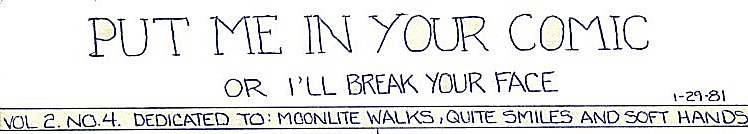 PUT ME IN YOUR COMIC
OR I'LL BREAK YOUR FACE
1-29-81
VOL 2. NO.4. DEDICATED TO: MOONLITE WALKS, QUITE SMILES AND SOFT HANDS